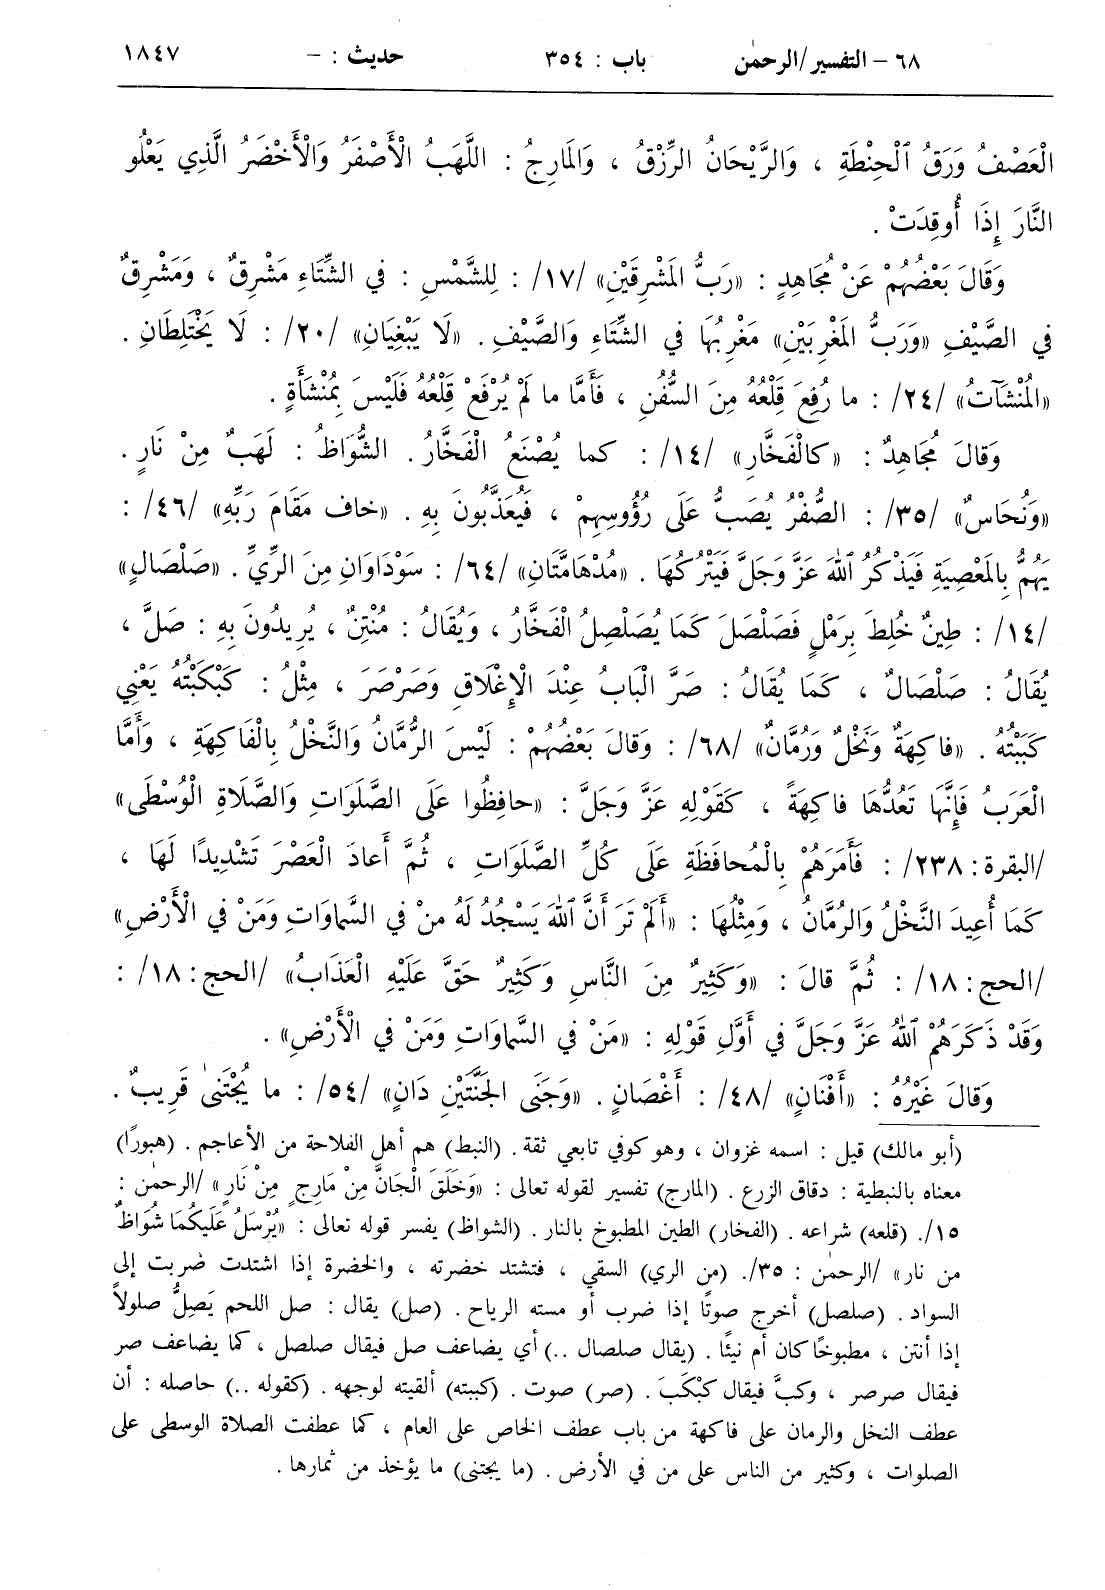 ٦٨ – التفسير/الرحمٰن باب : ٣٥٤ حديث : – ١٨٤٧
الْعَصْفُ وَرَقُ ٱلْحِنْطَةِ ، وَالرَّيْحَانُ الرِّزْقُ ، وَالمَارِجُ : اللَّهَبُ الْأَصْفَرُ وَالْأَخْضَرُ الَّذِي يَعْلُو
النَّارَ إِذَا أُوقِدَتْ .
وَقَالَ بَعْضُهُمْ عَنْ مُجَاهِدٍ : «رَبُّ المَشْرِقَيْنِ» /١٧/ : لِلشَّمْسِ : في الشِّتَاءِ مَشْرِقٌ ، وَمَشْرِقٌ
في الصَّيْفِ «وَرَبُّ المَغْرِبَيْنِ» مَغْرِبُهَا في الشِّتَاءِ وَالصَّيْفِ . «لَا يَبْغِيَانِ» /٢٠/ : لَا يَخْتَلِطَانِ .
«المُنْشَآتُ» /٢٤/ : ما رُفِعَ قِلْعُهُ مِنَ السُّفُنِ ، فَأَمَّا ما لَمْ يُرْفَعْ قِلْعُهُ فَلَيْسَ بِمُنْشَأَةٍ .
وَقَالَ مُجَاهِدٌ : «كالْفَخَّارِ» /١٤/ : كما يُصْنَعُ الْفَخَّارُ . الشُّوَاظُ : لَهَبٌ مِنْ نَارٍ .
«وَنُحَاسٌ» /٣٥/ : الصُّفْرُ يُصَبُّ عَلَى رُؤُوسِهِمْ ، فَيُعَذَّبُونَ بِهِ . «خاف مَقَامَ رَبِّهِ» /٤٦/ :
يَهُمُّ بِالمَعْصِيَةِ فَيَذْكُرُ ٱللهَ عَزَّ وَجَلَّ فَيَتْرُكُهَا . «مُدْهَامَّتَانِ» /٦٤/ : سَوْدَاوَانِ مِنَ الرِّيِّ . «صَلْصَالٍ»
/١٤/ : طِينٌ خُلِطَ بِرَمْلٍ فَصَلْصَلَ كَمَا يُصَلْصِلُ الْفَخَّارُ ، وَيُقَالُ : مُنْتِنٌ ، يُرِيدُونَ بِهِ : صَلَّ ،
يُقَالُ : صَلْصَالٌ ، كَمَا يُقَالُ : صَرَّ الْبَابُ عِنْدَ الْإِغْلَاقِ وَصَرْصَرَ ، مِثْلُ : كَبْكَبْتُهُ يَعْنِي
كَبَبْتُهُ . «فاكِهَةٌ وَنَخْلٌ وَرُمَّانٌ» /٦٨/ : وَقَالَ بَعْضُهُمْ : لَيْسَ الرُّمَّانُ وَالنَّخْلُ بِالْفَاكِهَةِ ، وَأَمَّا
الْعَرَبُ فَإِنَّهَا تَعُدُّهَا فاكِهَةً ، كَقَوْلِهِ عَزَّ وَجَلَّ : «حافِظُوا عَلَى الصَّلَوَاتِ وَالصَّلَاةِ الْوُسْطَى»
/البقرة: ٢٣٨/ : فَأَمَرَهُمْ بِالْمُحَافَظَةِ عَلَى كُلِّ الصَّلَوَاتِ ، ثُمَّ أَعادَ الْعَصْرَ تَشْدِيدًا لَهَا ،
كَمَا أُعِيدَ النَّخْلُ وَالرُمَّانُ ، وَمِثْلُهَا : «أَلَمْ تَرَ أَنَّ ٱللهَ يَسْجُدُ لَهُ منْ في السَّماوَاتِ وَمَنْ في الْأَرْضِ»
/الحج: ١٨/ : ثُمَّ قالَ : «وَكَثِيرٌ مِنَ النَّاسِ وَكَثِيرٌ حَقَّ عَلَيْهِ الْعَذَابُ» /الحج: ١٨/ :
وَقَدْ ذَكَرَهُمْ ٱللهُ عَزَّ وَجَلَّ في أَوَّلِ قَوْلِهِ : «مَنْ في السَّماوَاتِ وَمَنْ في الْأَرْضِ» .
وَقَالَ غَيْرُهُ : «أَفْنَانٍ» /٤٨/ : أَغْصَانٍ . «وَجَنَى الجَنَّتَيْنِ دَانٍ» /٥٤/ : ما يُجْتَنىٰ قَرِيبٌ .
(أبو مالك) قيل : اسمه غزوان ، وهو كوفي تابعي ثقة . (النبط) هم أهل الفلاحة من الأعاجم . (هبورًا)
معناه بالنبطية : دقاق الزرع . (المارج) تفسير لقوله تعالى : «وَخَلَقَ الْجَانَّ مِنْ مَارِجٍ مِنْ نَارٍ» /الرحمٰن :
١٥/. (قلعه) شراعه . (الفخار) الطين المطبوخ بالنار . (الشواظ) يفسر قوله تعالى : «يُرْسَلُ عَلَيكُمَا شُوَاظٌ
من نار» /الرحمٰن : ٣٥/. (من الري) السقي ، فتشتد خضرته ، والخضرة إذا اشتدت ضربت إلى
السواد . (صلصل) أخرج صوتًا إذا ضرب أو مسته الرياح . (صل) يقال : صل اللحم يَصِلُّ صلولاً
إذا أنتن ، مطبوخًا كان أم نيئًا . (يقال صلصال ..) أي يضاعف صل فيقال صلصل ، كما يضاعف صر
فيقال صرصر ، وكبَّ فيقال كَبْكَبَ . (صر) صوت . (كببته) ألقيته لوجهه . (كقوله ..) حاصله : أن
عطف النخل والرمان على فاكهة من باب عطف الخاص على العام ، كما عطفت الصلاة الوسطى على
الصلوات ، وكثير من الناس على من في الأرض . (ما يجتنى) ما يؤخذ من ثمارها .